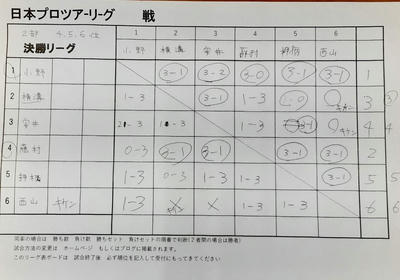 日本プロツアーリーグ 戦
2部 4.5.6位
決勝リーグ
1 2 3 4 5 6
小野 横溝 安井 西山
1 小野 3-1 3-2 3-0 3-1 3-1 1
2 横溝 1-3 3-1 1-3 キケン 3 3
3 安井 1-3 3-1 キケン 4 4
4 藤村 0-3 3-1 3-1 3-1 3-1 2
5 1-3 0-3 1-3 1-3 3-1 5 5
6 西山 キケン 1-3 × × 1-3 1-3 6 6
同率の場合は 勝ち数 負け数 勝ちセット 負けセットの順番で判断(2者間の場合は勝者)
試合方法の変更は ホームページ もしくはブログに掲載されます。
このリーグ表ボードは 試合終了後 必ず順位を記入して受付にもってきてください